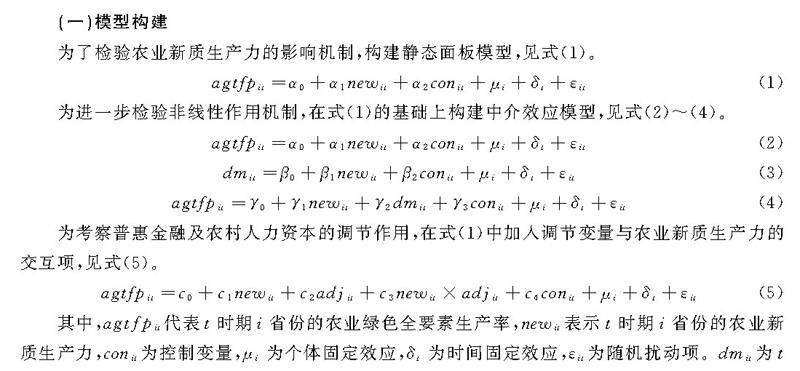 (一)模型构建
为了检验农业新质生产力的影响机制,构建静态面板模型,见式(1)。
agtfp_it=α_0+α_1new_it+α_2con_it+μ_i+δ_t+ε_it (1)
为进一步检验非线性作用机制,在式(1)的基础上构建中介效应模型,见式(2)~(4)。
agtfp_it=α_0+α_1new_it+α_2con_it+μ_i+δ_t+ε_it (2)
dm_it=β_0+β_1new_it+β_2con_it+μ_i+δ_t+ε_it (3)
agtfp_it=γ_0+γ_1new_it+γ_2dm_it+γ_3con_it+μ_i+δ_t+ε_it (4)
为考察普惠金融及农村人力资本的调节作用,在式(1)中加人调节变量与农业新质生产力的
交互项,见式(5)。
agtfp_it=c_0+c_1new_it+c_2adj_it+c_3new_it×adj_it+c_4con_it+μ_i+δ_t+ε_it (5)
其中,agtfp_it代表t时期i省份的农业绿色全要素生产率,new_it表示t时期i省份的农业新
质生产力,con_it为控制变量,μ_i为个体固定效应,δ_t为时间固定效应,ε_it为随机扰动项。dm_it为t